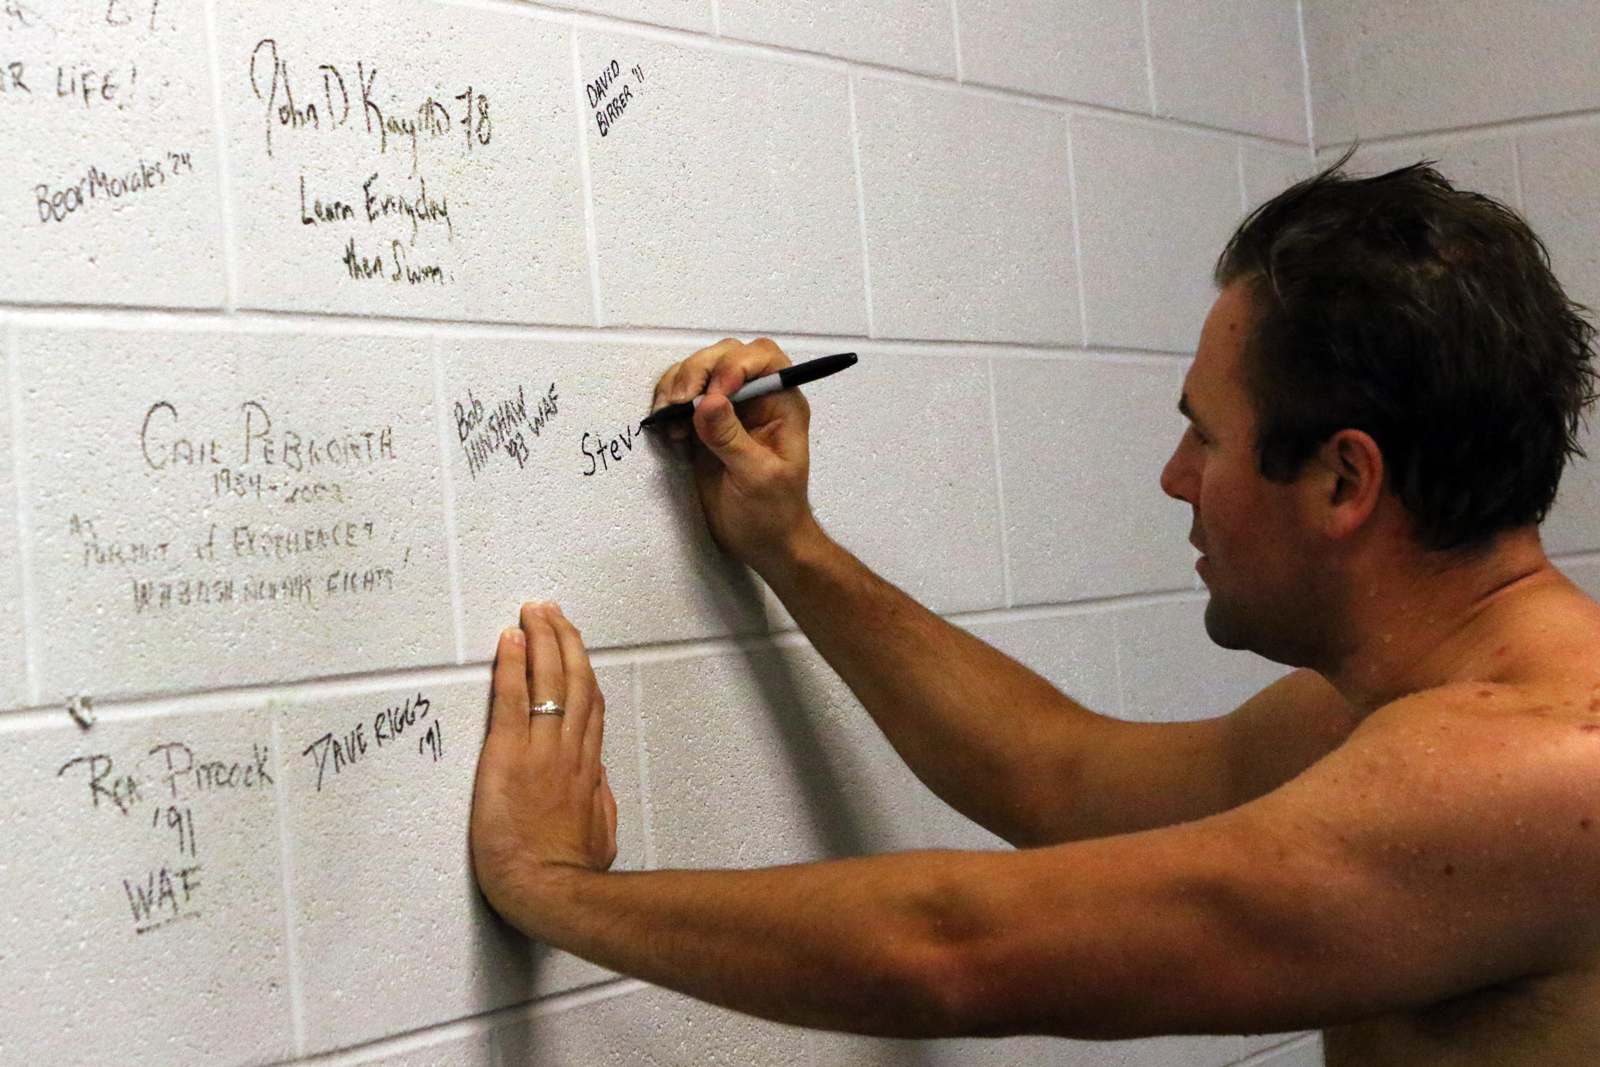 R LIFE!
Bear Morales '24
John D. 78
Learn Everyday
then Swim.
DAVID
BIRRER '11
GAIL PEBWORTH
1954-2002
"IN
PURSUIT of EXCELLENCE"
WABASH ALWAYS FIGHTS!
Bob
HINSHAW WAF
'93
Stev
PITCOCK
'91
WAF
DAVE RIGGS
'91